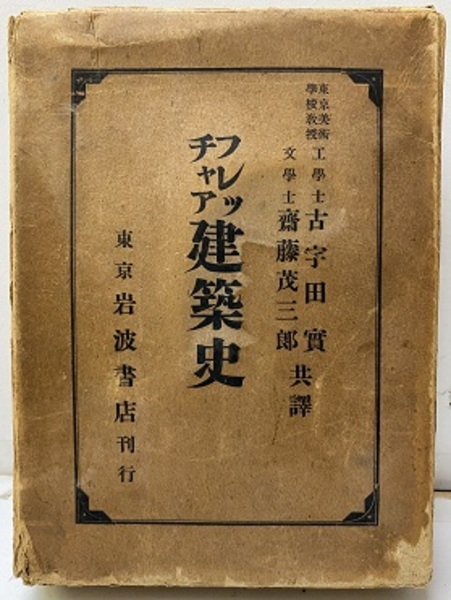 東京美術
學校教授
工學士 古宇田實
文學士 齋藤茂三郎
共譯
フレッ
チャア
建築史
東京岩波書店刊行